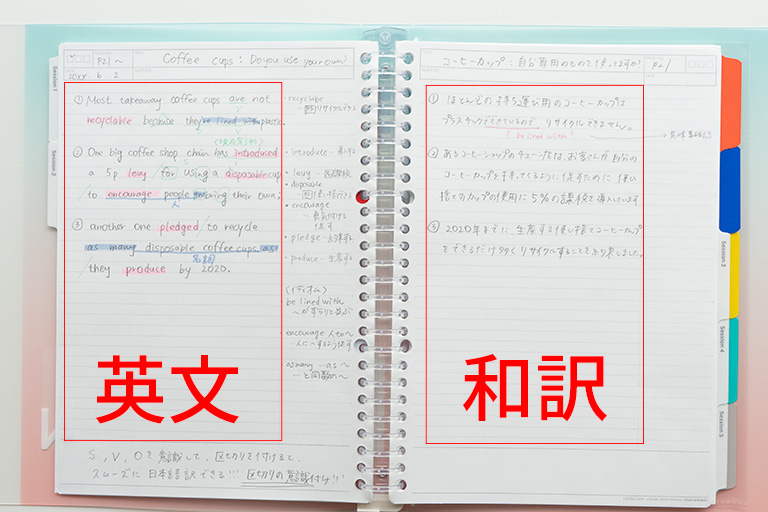 P21〜
Coffee cups : Do you use your own?
20XX 6 2
① Most takeaway coffee cups are not
recyclable because they're lined with plastic.
② One big coffee shop chain has introduced
a 5p levy for using a disposable cup
to encourage people to bring their own;
人
③ another one pledged to recycle
as many disposable coffee cups as
名詞
they produce by 2020.
英文
・recyclable
リサイクルできる
・introduce
・levy
・disposable
・encourage
・勇気付ける
促す
・pledge
・produce 生産する
(イディオム)
be lined with
encourage 人 to〜
人に〜するよう促す
as many … as 〜
S , V , O を意識して、区切りを付けると、
スムーズに日本語訳できる!!! 区切りの意識付け!!
コーヒーカップ : 自分専用のものを使ってますか?
P21
① ほとんどの持ち運び用のコーヒーカップは
プラスチックでできているので、リサイクルできません。
? be lined with ?
② あるコーヒーショップのチェーン店は、お客さんが自分の
コーヒーカップを持ってくるように促すために 使い
捨てのカップの使用に 5%の課税を導入しています
③ 2020年までに、生産する使い捨てコーヒーカップ
をできるだけ多くリサイクルすることを
和訳
Session 1
Session 2
Session 3
Session 4
Session 5